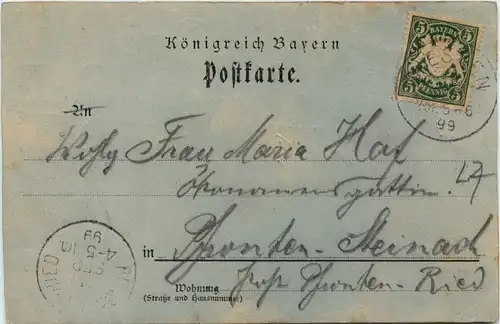 Königreich Bayern
Postkarte.
BAYERN
5 5
5 PFENNIG 5
99
An
Frau Maria Hof
Ökonomensgattin
in Pfronten-Steinach
Post Pfronten-Ried
Wohnung
(Straße und Hausnummer)
RIED
SEP
4-5 
99